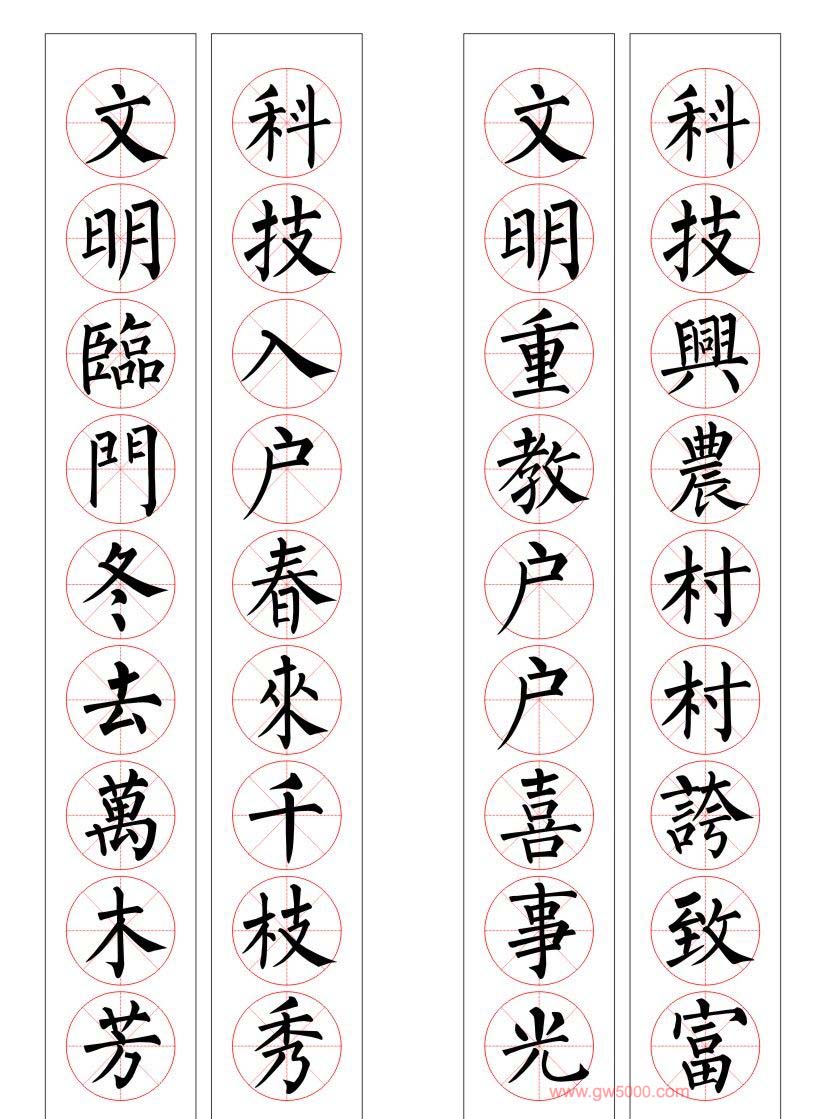 科技興農村村誇致富
文明重教户户喜事光
科技入户春來千枝秀
文明臨門冬去萬木芳
www.gw5000.com